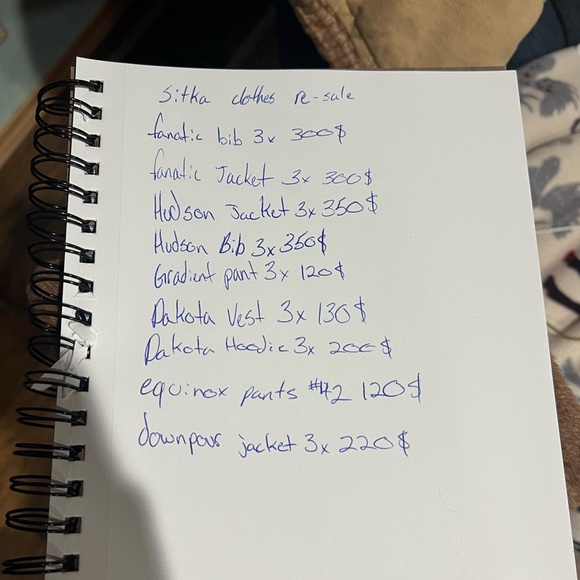 Sitka clothes re-sale
fanatic bib 3x 300$
fanatic Jacket 3x 300$
Hudson Jacket 3x 350$
Hudson Bib 3x 350$
Gradient pant 3x 120$
Dakota Vest 3x 130$
Dakota Hoodie 3x 200$
equinox pants #42 120$
downpour jacket 3x 220$